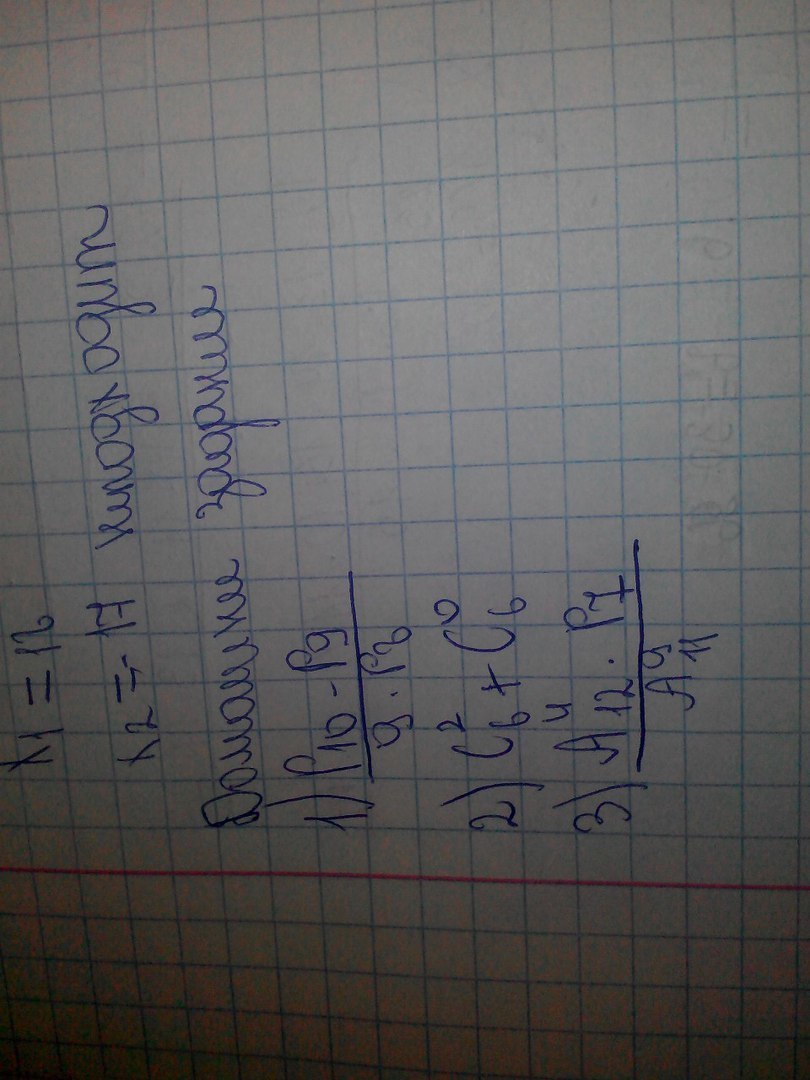 x1 = 12
x2 = - 17 не подходит
Домашнее задание
1) P10 - P9
9 · P8
2) C6^2 + C6^0
3) A12^4 · P7
A11^9